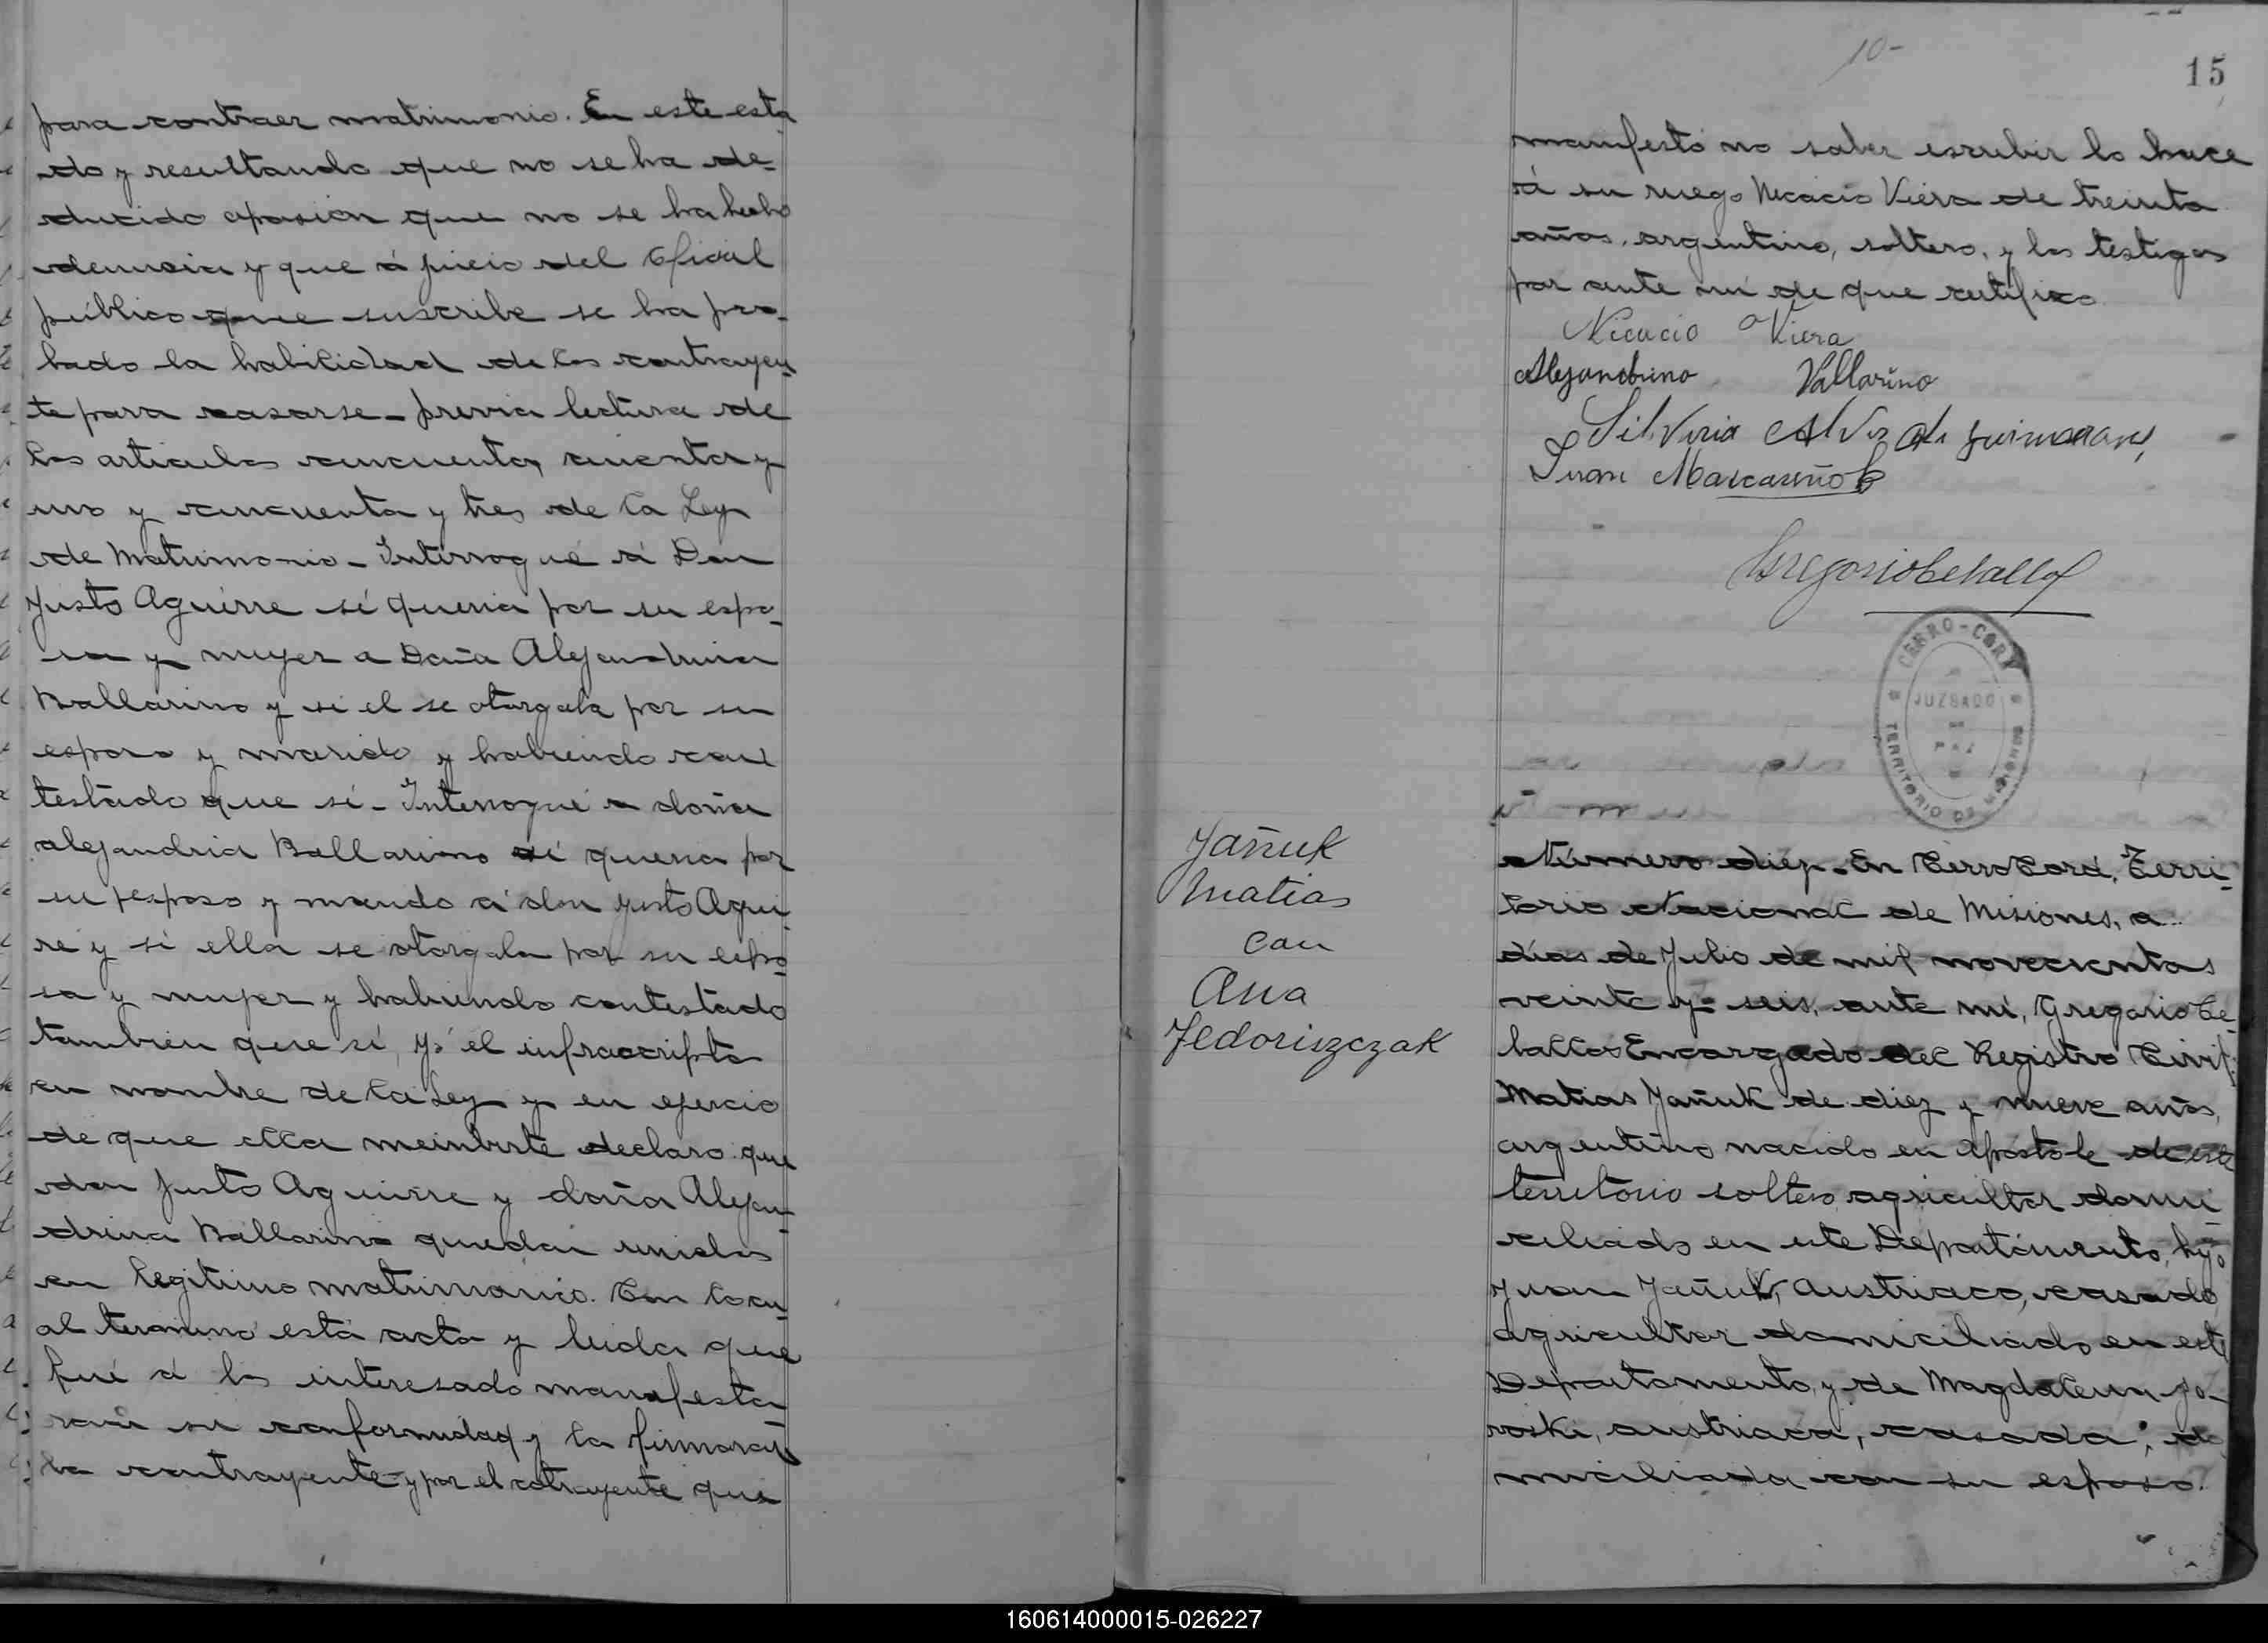 para contraer matrimonio. En este esta
do y resultando que no se ha de-
ducido oposicion que no se ha hecho
denuncia y que á juicio del Oficial
público que suscribe se ha pro-
bado la habilidad de los contrayen
te para casarse - previa lectura de
los articulos cincuenta, cincuenta y
uno y cincuenta y tres de la Ley
de Matrimonio - Interrogué á Don
Justo Aguirre si queria por su espo-
sa y mujer a Doña Alejandrina
Ballarino y si el se otorgaba por su
esposo y marido y habiendo con
testado que sí - Interrogué a doña
alejandria Ballarino si queria por
su esposo y marido á don Justo Agui-
re y si ella se otorgaba por su espo-
sa y mujer y habiendo contestado
tambien que sí, Yó el infrascripto
en nombre de la Ley y en ejercio
de que ella meinbiste declaro que
don Justo Aguirre y doña Alejan-
drina Ballarino quedan unidos
en legitimo matrimonio. Con lo cu-
al terminó esta acta y leida que
fué á los interesado manifesta-
ron su conformidad y la firmaron
la contrayente y por el cotrayente que
10-
15
manifestó no saber escribir lo hace
á su ruego Nicacio Viera de treinta
años, argentino, soltero, y los testigos
por ante mí de que certifico
Nicacio Viera
Alejandrina Vallarino
Silveria Alvez de Guimaraes,
Juan Mascareño
Gregorio Ceballos
CERRO-CORÁ
JUZGADO
DE
PAZ
TERRITORIO DE MISIONES
Yañuk
Matias
con
Ana
Fedoriszczak
Número diez. En Cerro Corá, Terri-
torio Nacional de Misiones, a...
días de Julio de mil novecientos
veinte y seis, ante mí, Gregorio Ce-
ballos Encargado del Registro Civil;
Matias Yañuk de diez y nueve años,
argentino nacido en Apóstole de este
territorio soltero agricultor domi-
ciliado en este Departamento, hijo
Juan Yañuk, Austriaco, casado
agricultor domiciliado en este
Departamento, y de Magdalena Ja-
roski, austriaca, casada; do
miciliada con su esposo.
160614000015-026227